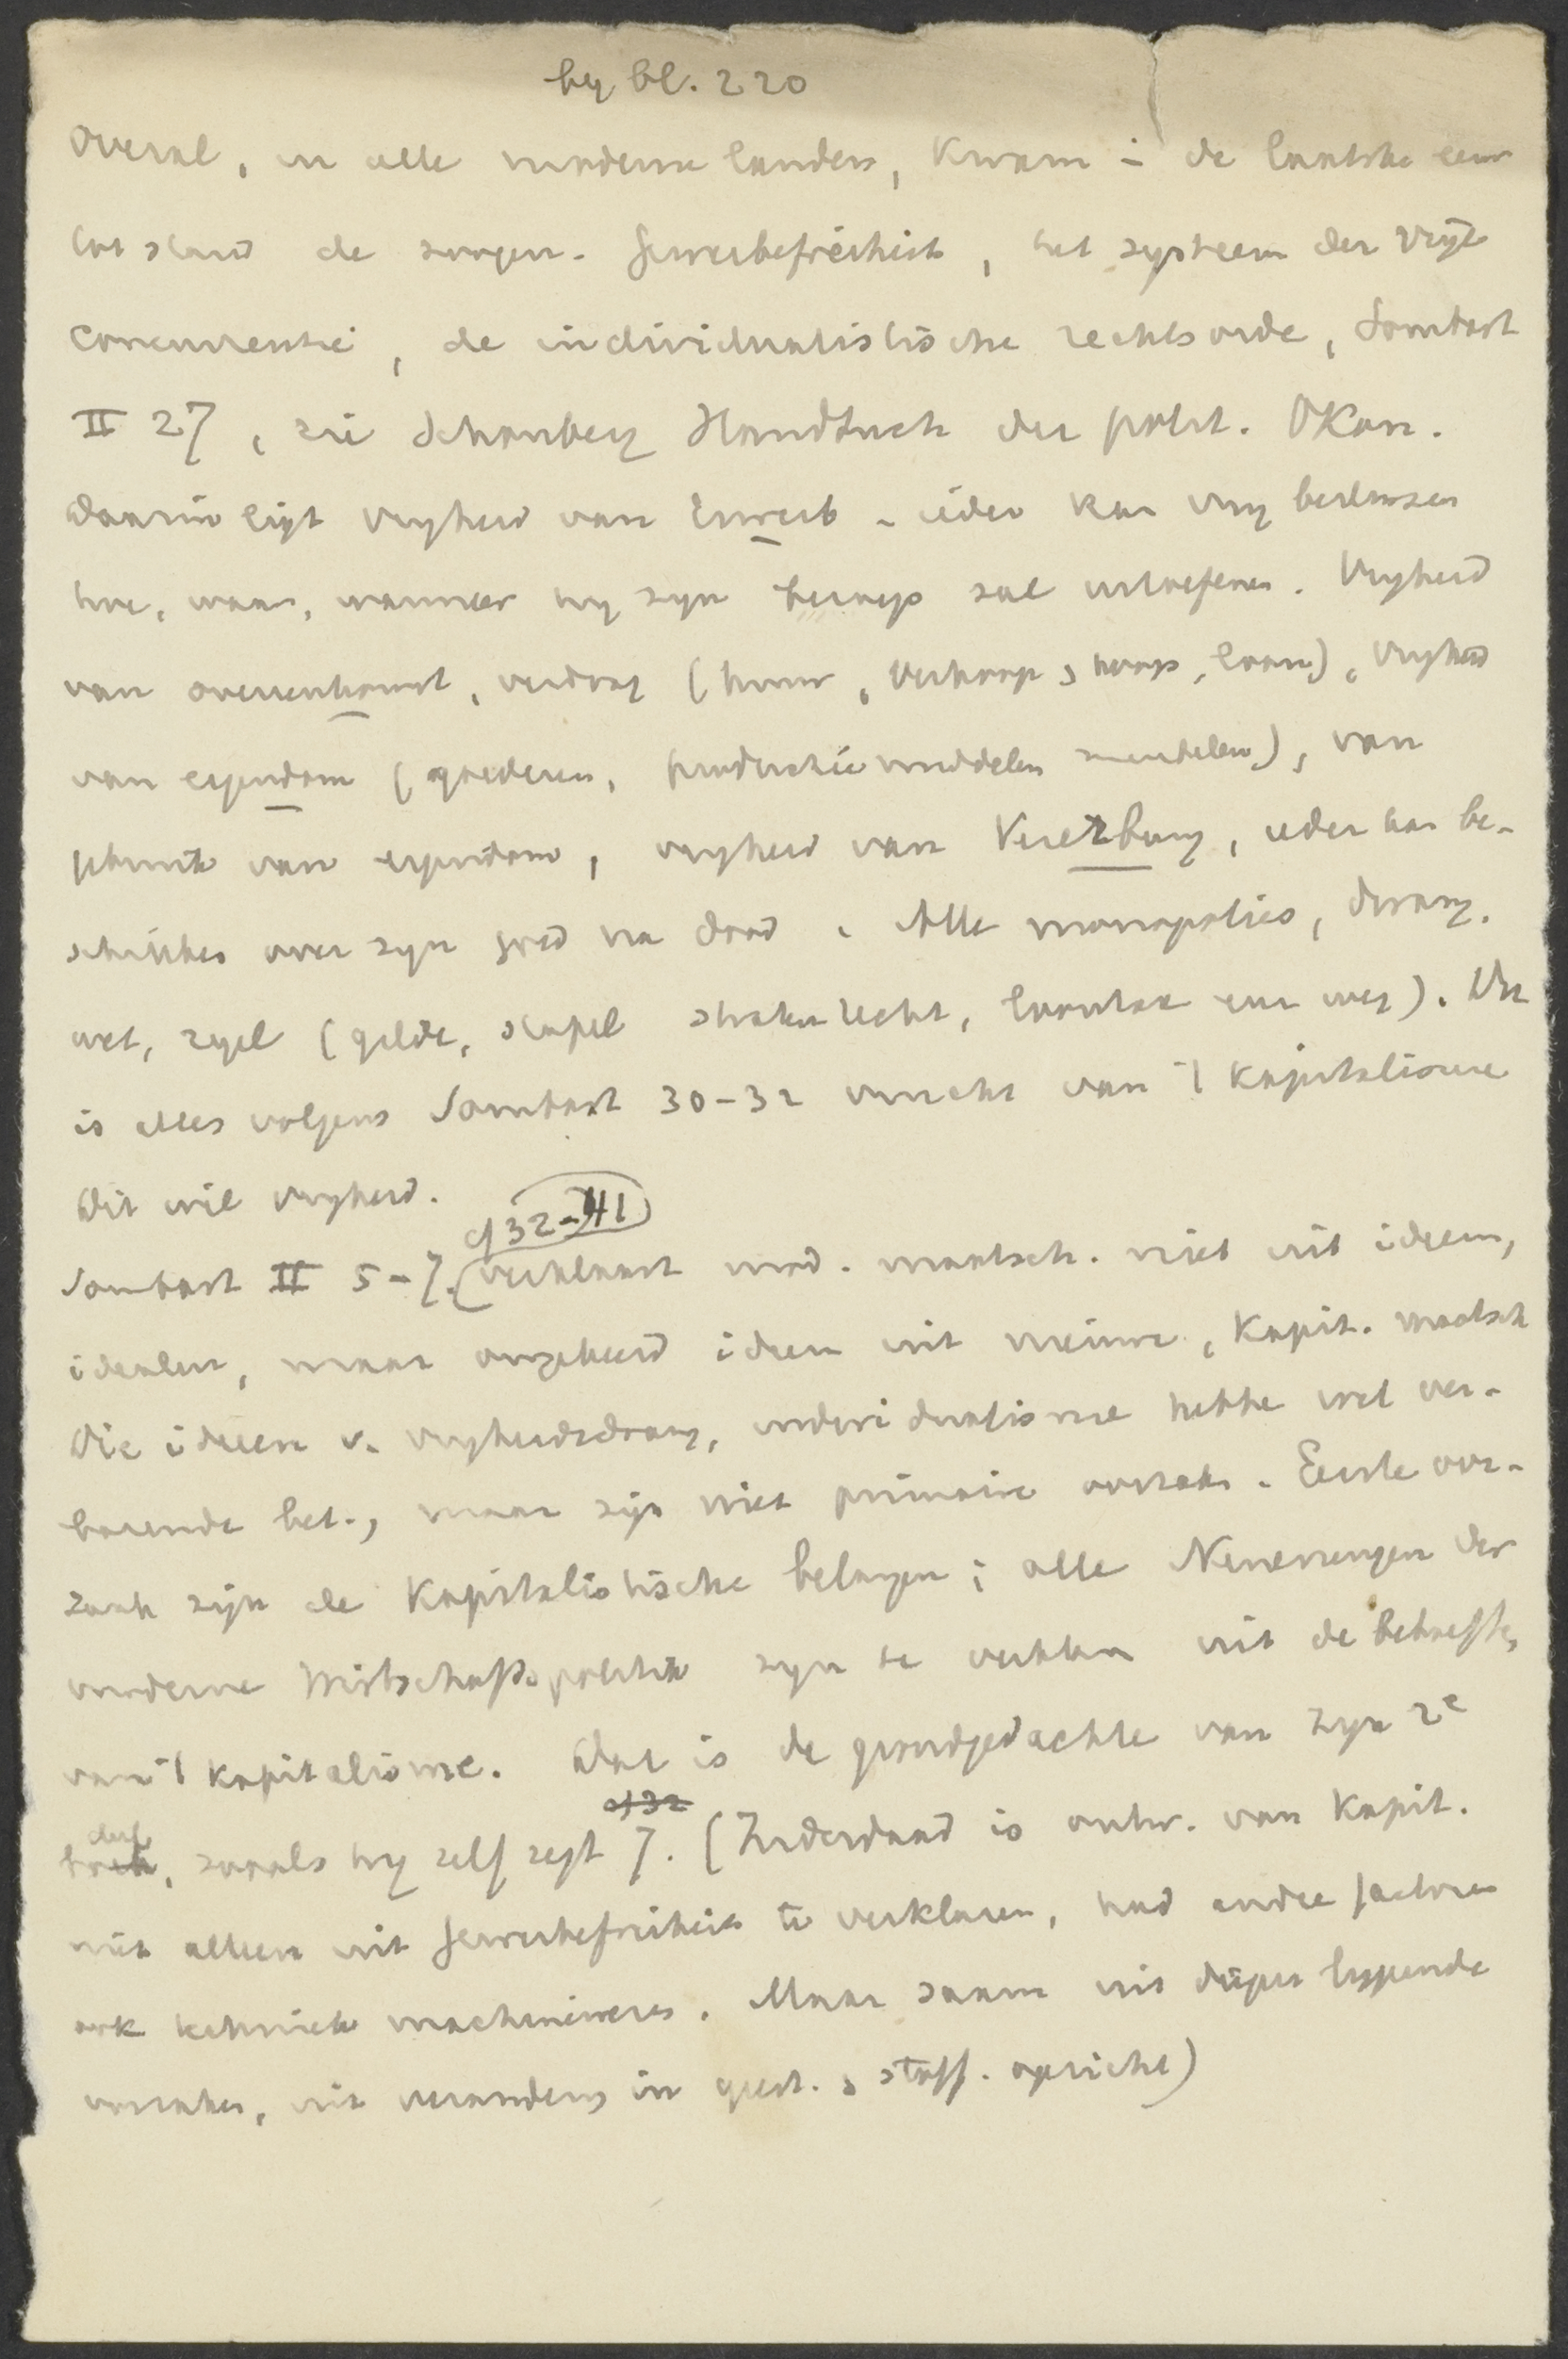 by bl. 220
Overal, in alle moderne landen, kwam in de laatste eeuw
tot stand de zoogen. Gewerbefreiheit, het systeem der vrije
concurrentie, de individualistische rechtsorde, Sombart
II 27, zie Schonberg Handbuch der polit. Okon.
Daarin ligt vryheid van Erwerb - ieder kan vry beslissen
hoe, waar, wanneer hy zyn beroep zal uitoefenen. Vryheid
van overeenkomst, verdrag (huur, verkoop, koop, loon), vryheid
van eigendom (goederen, productiemiddelen), van
van eigendom, vryheid van Vererbung, ieder kan be-
schikken over zyn goed na dood. Alle monopolies, dwang,
wet, regel (gilde, stapel recht, loontax enz weg). Dit
is alles volgens Sombart 30-32 vrucht van 't kapitalisme
Dit wil vryheid.
cf 32-41
Sombart II 5-7. (verklaart mod. maatsch. niet uit ideeen,
idealen, maar omgekeerd ideen uit nieuwe, kapit. maatsch
Die ideeen v. vryheidsdrang, individualisme hebbe wel ver-
bet., maar zijn niet primaire oorzaken. Eerste oor-
zaak zijn de kapitalistische belangen; alle Neuerungen der
moderne Wirtschaftspolitik zyn te verklaren uit de behoeften
van 't kapitalisme. Dat is de grondgedachte van zyn 2e
cf 32
deel
boek, zooals hy zelf zegt 7. (Inderdaad is ontw. van kapit.
niet alleen uit Gewerbefreiheit te verklaren, had andre factoren
ook techniek machinewezen. Maar saam uit dieper liggende
oorzaken, uit verandering in geest. & stoff. opzicht)